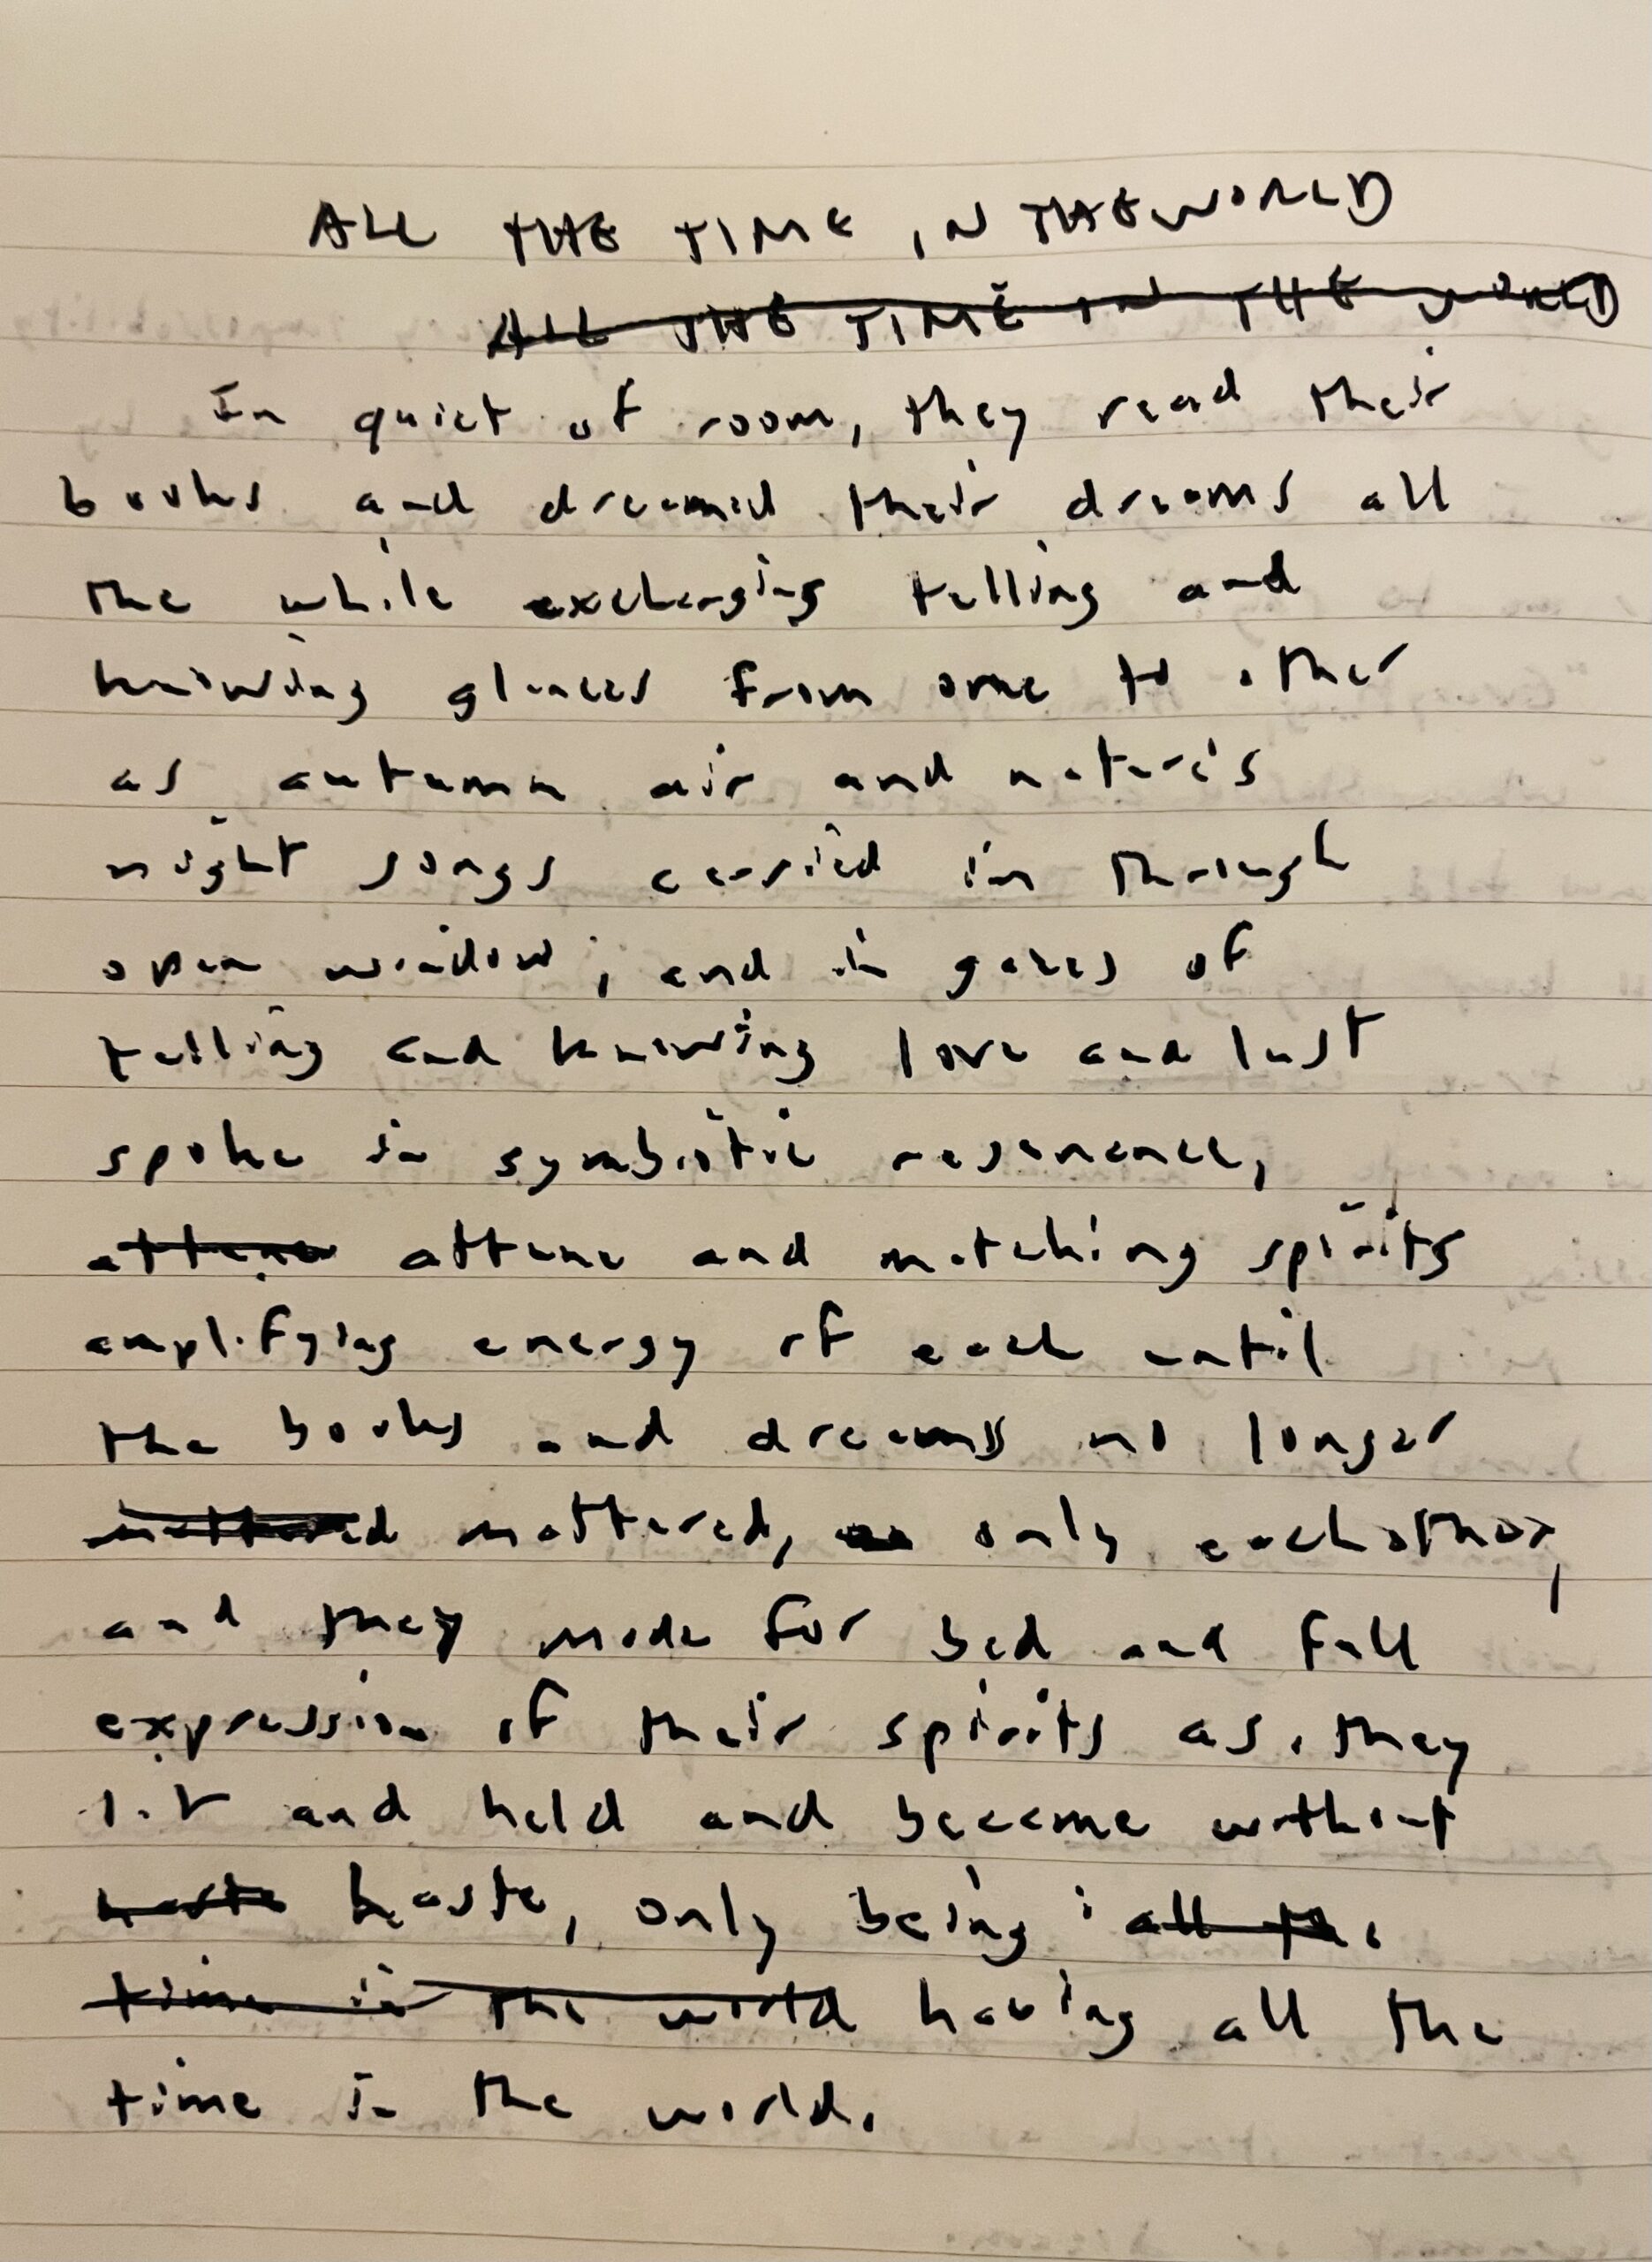 ALL THE TIME IN THE WORLD
ALL THE TIME IN THE WORLD
In quiet of room, they read their
books and dreamed their dreams all
the while exchanging telling and
knowing glances from one to other
as autumn air and nature's
night songs carried in through
open window, and in gazes of
telling and knowing love and lust
spoke in symbiotic resonance,
attune attune and matching spirits
amplifying energy of each until
the books and dreams no longer
mattered mattered, only eachother,
and they made for bed and full
expression of their spirits as they
lit and held and became without
haste haste, only being : all the
time in the world having all the
time in the world.